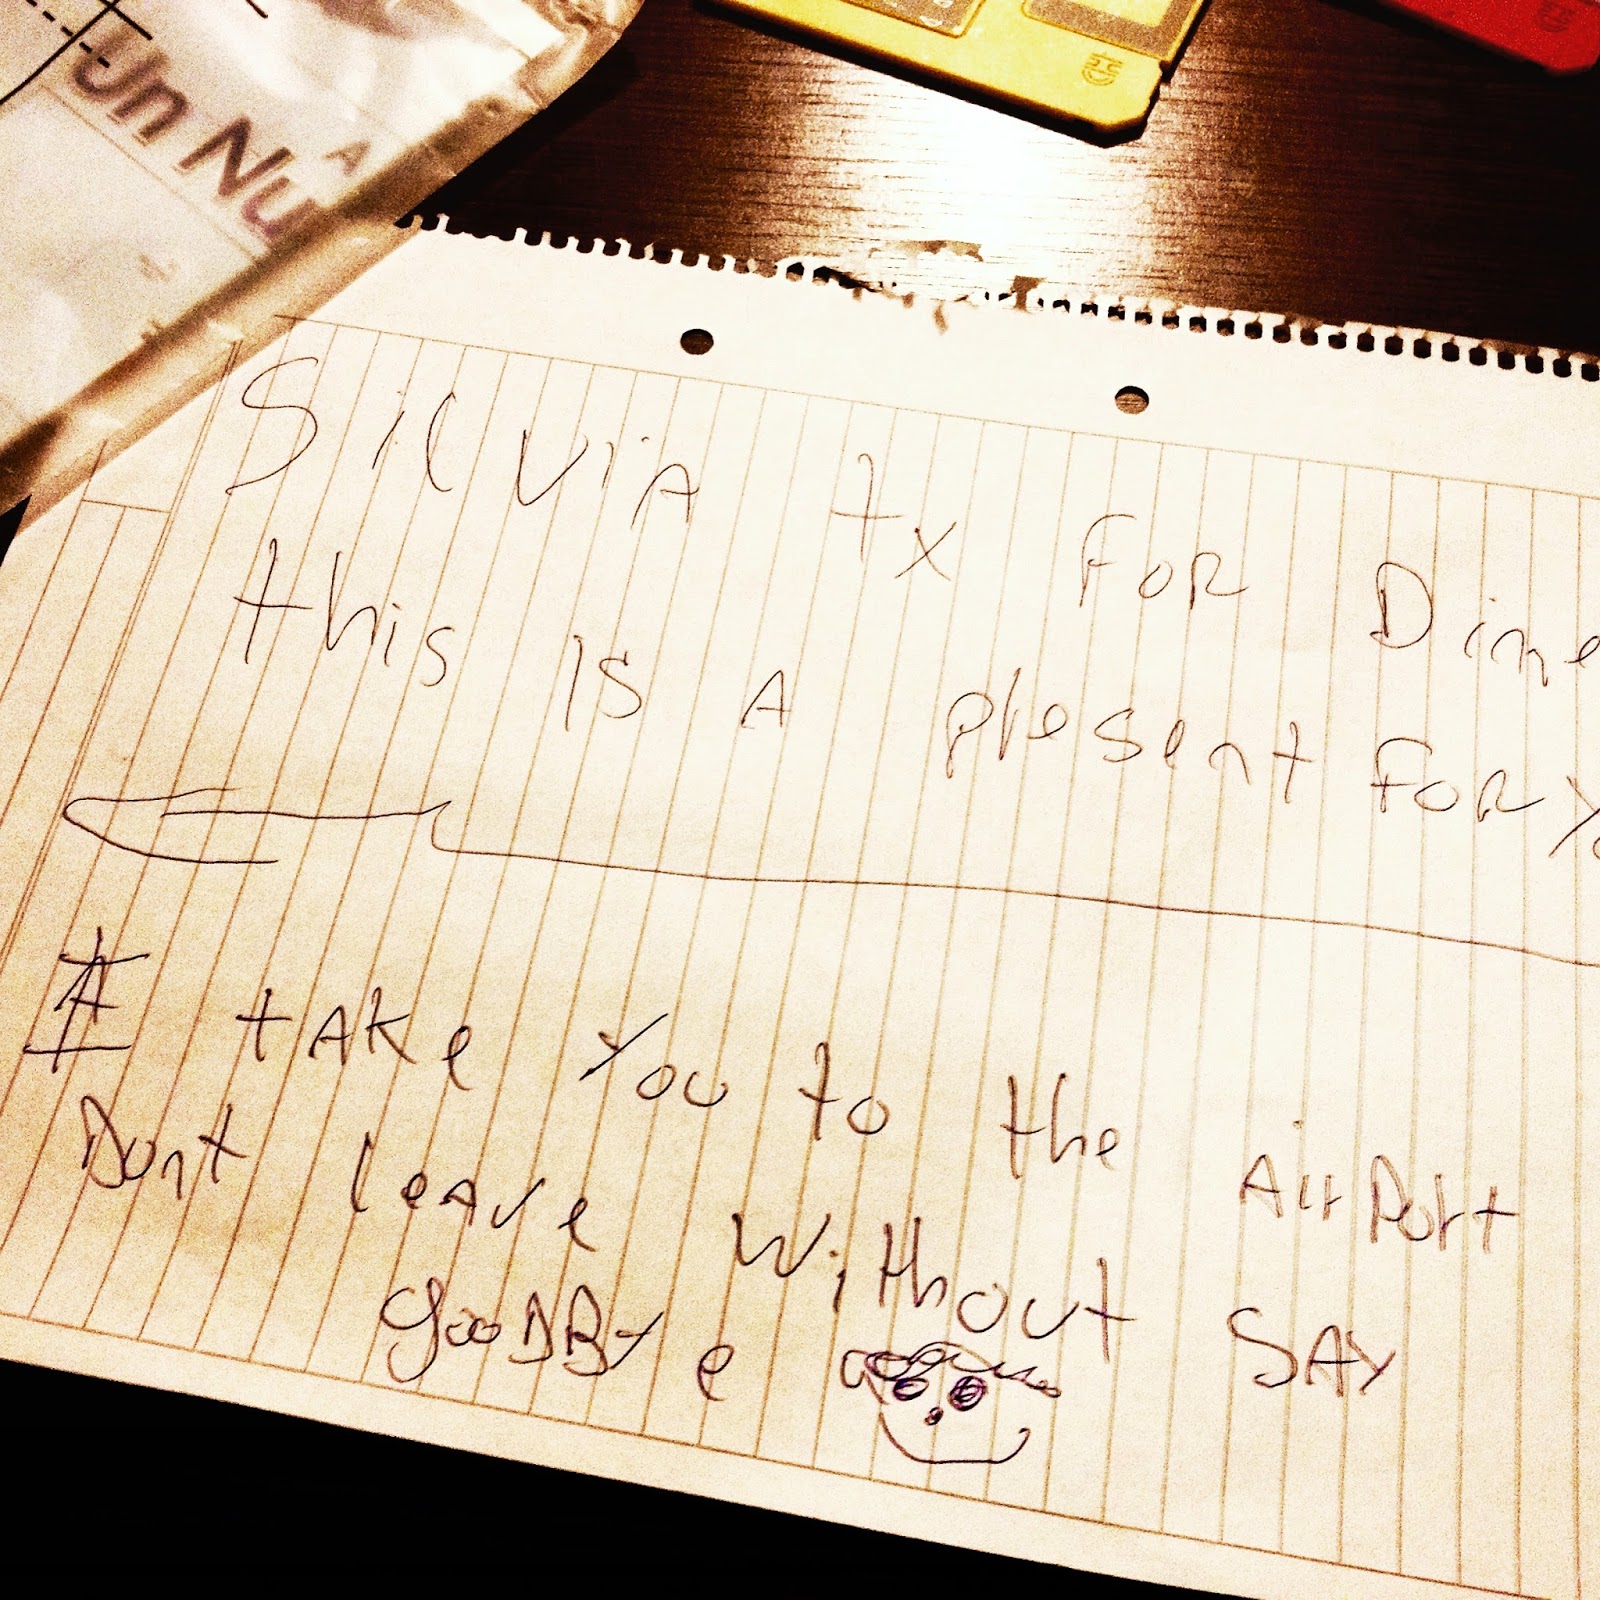 SilviA tx FoR Dine
this IS A present FoR Yo
I tAke You to the AirPort
Dont leAve Without SAY
gooDBYe